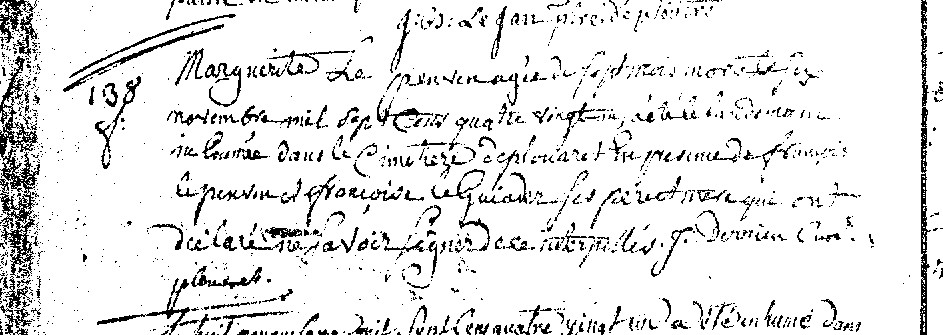 gus: Le Jan ptre: de plouaret
138 Marguerite Le penven agée de sept mois morte le six
novembre mil sept Cens quatre vingt un, a été le lendemain
inhumée dans le Cimetiere de plouaret en presence de françois
le penven et françoise le Guiader ses pere et mere qui ont
declaré ne savoir signer de ce interpellés. J. Derrien Curé.
plouaret.
huit novembre mil sept Cens quatre vingt un a été inhumé dans